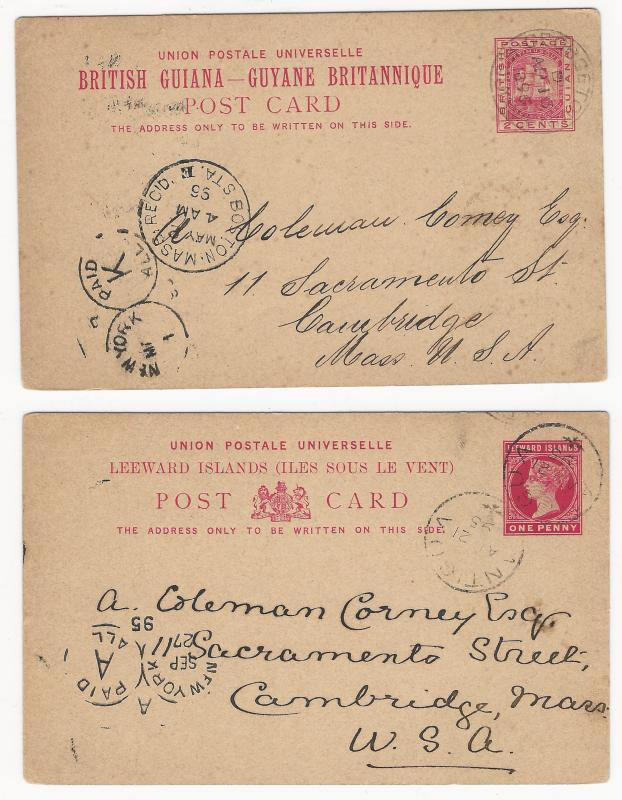 UNION POSTALE UNIVERSELLE
BRITISH GUIANA—GUYANE BRITANNIQUE
POST CARD
THE ADDRESS ONLY TO BE WRITTEN ON THIS SIDE.
BRITISH
POSTAGE
GUIANA
2 CENTS
BOSTON·MASS. REC'D.
STA. E
4 AM
MAY
95
PAID
K
ALL
NEW YORK
Coleman Comey Esq.
11 Sacramento St.
Cambridge
Mass. U.S.A.
UNION POSTALE UNIVERSELLE
LEEWARD ISLANDS (ILES SOUS LE VENT)
POST CARD
THE ADDRESS ONLY TO BE WRITTEN ON THIS SIDE.
LEEWARD ISLANDS
ONE PENNY
ANTIGUA
21
A. Coleman Corney Esq.
11 Sacramento Street,
Cambridge, Mass.
U.S.A.
NEW YORK
SEP
27
95
PAID
A
ALL